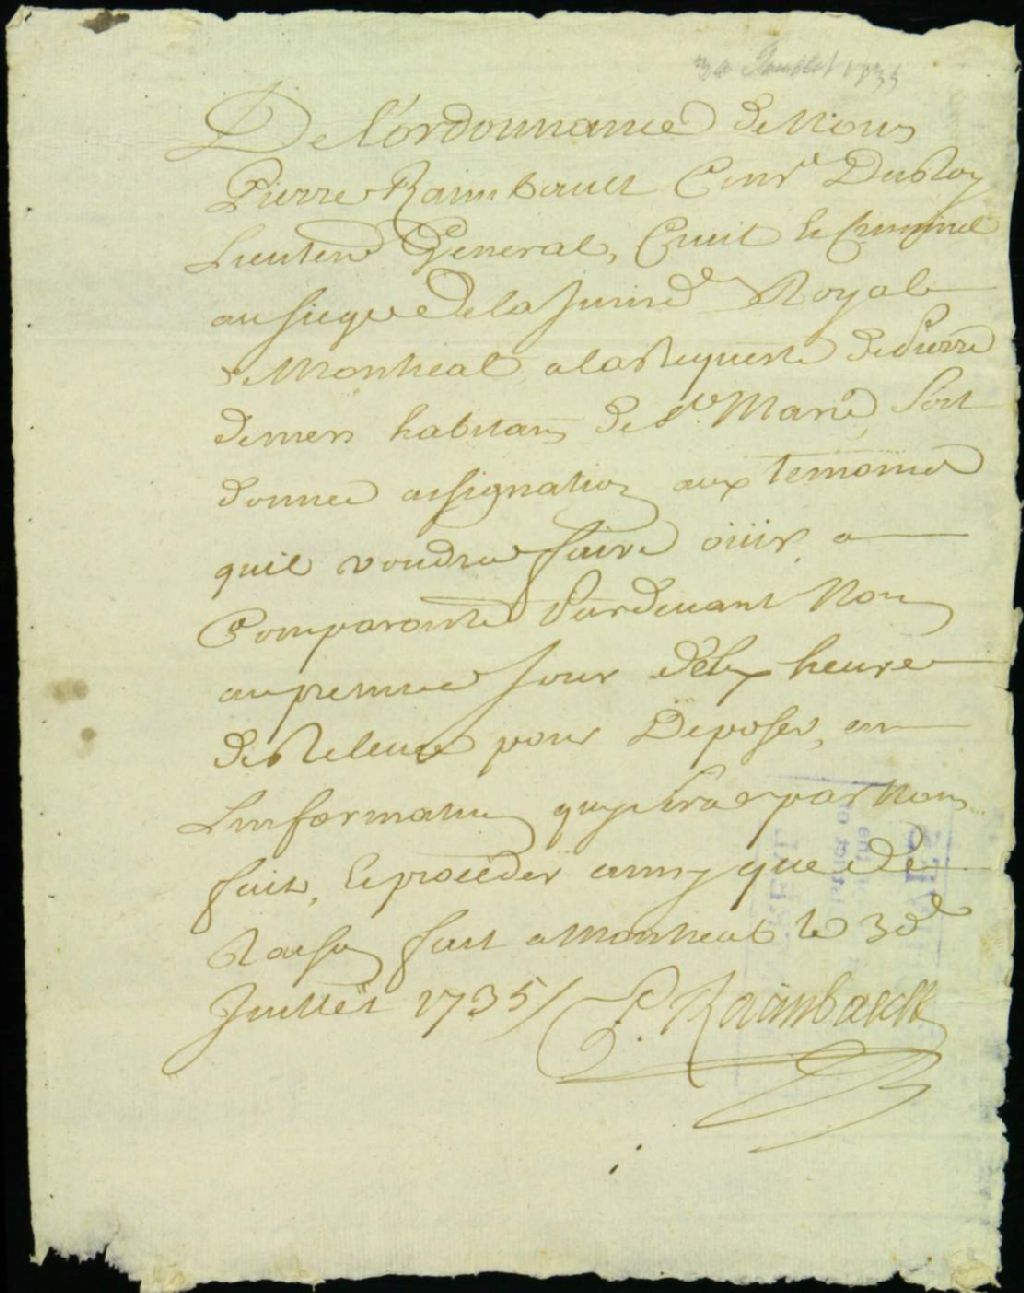 30 Juillet 1735
De l'ordonnance de Nous
Pierre Raimbault Consr Du Roy
Lieutend General, Civil & Criminel
au siege de la Jurisd Royale
de Montreal a la Requeste de Pierre
demers habitans de Ste Marie Soit
donnée assignation aux temoins
quil voudra faire oüir a
Comparoitre Pardevant Nous
au premier Jour de heure
de Relevée pour Deposer, en
Linformation qui sera par Nous
faite, & proceder ainsy que de
Raison fait a Montreal le 30e
Juillet 1735 / P. Raimbault